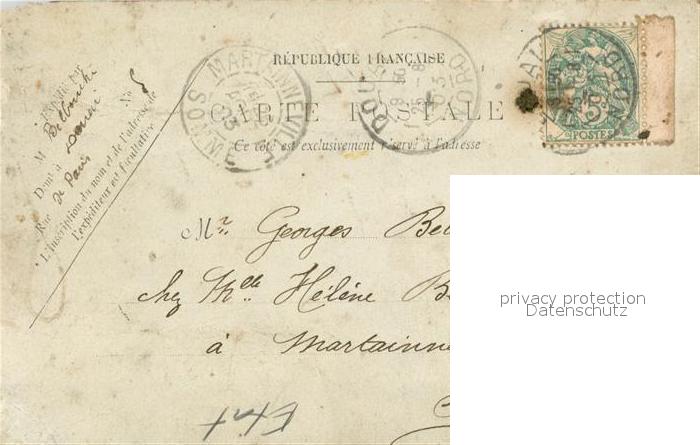 RÉPUBLIQUE FRANÇAISE
CARTE POSTALE
Ce côté est exclusivement réservé à l'adresse
MARTAINNEVILLE
SOMME
DOUAI
NORD
5
POSTES
M
No 5
Rue de Paris
L'inscription du nom et de l'adresse de
l'expéditeur est facultative.
Mr. Georges Bel
chez Melle Hélène B
à Martainne
privacy protection
Datenschutz